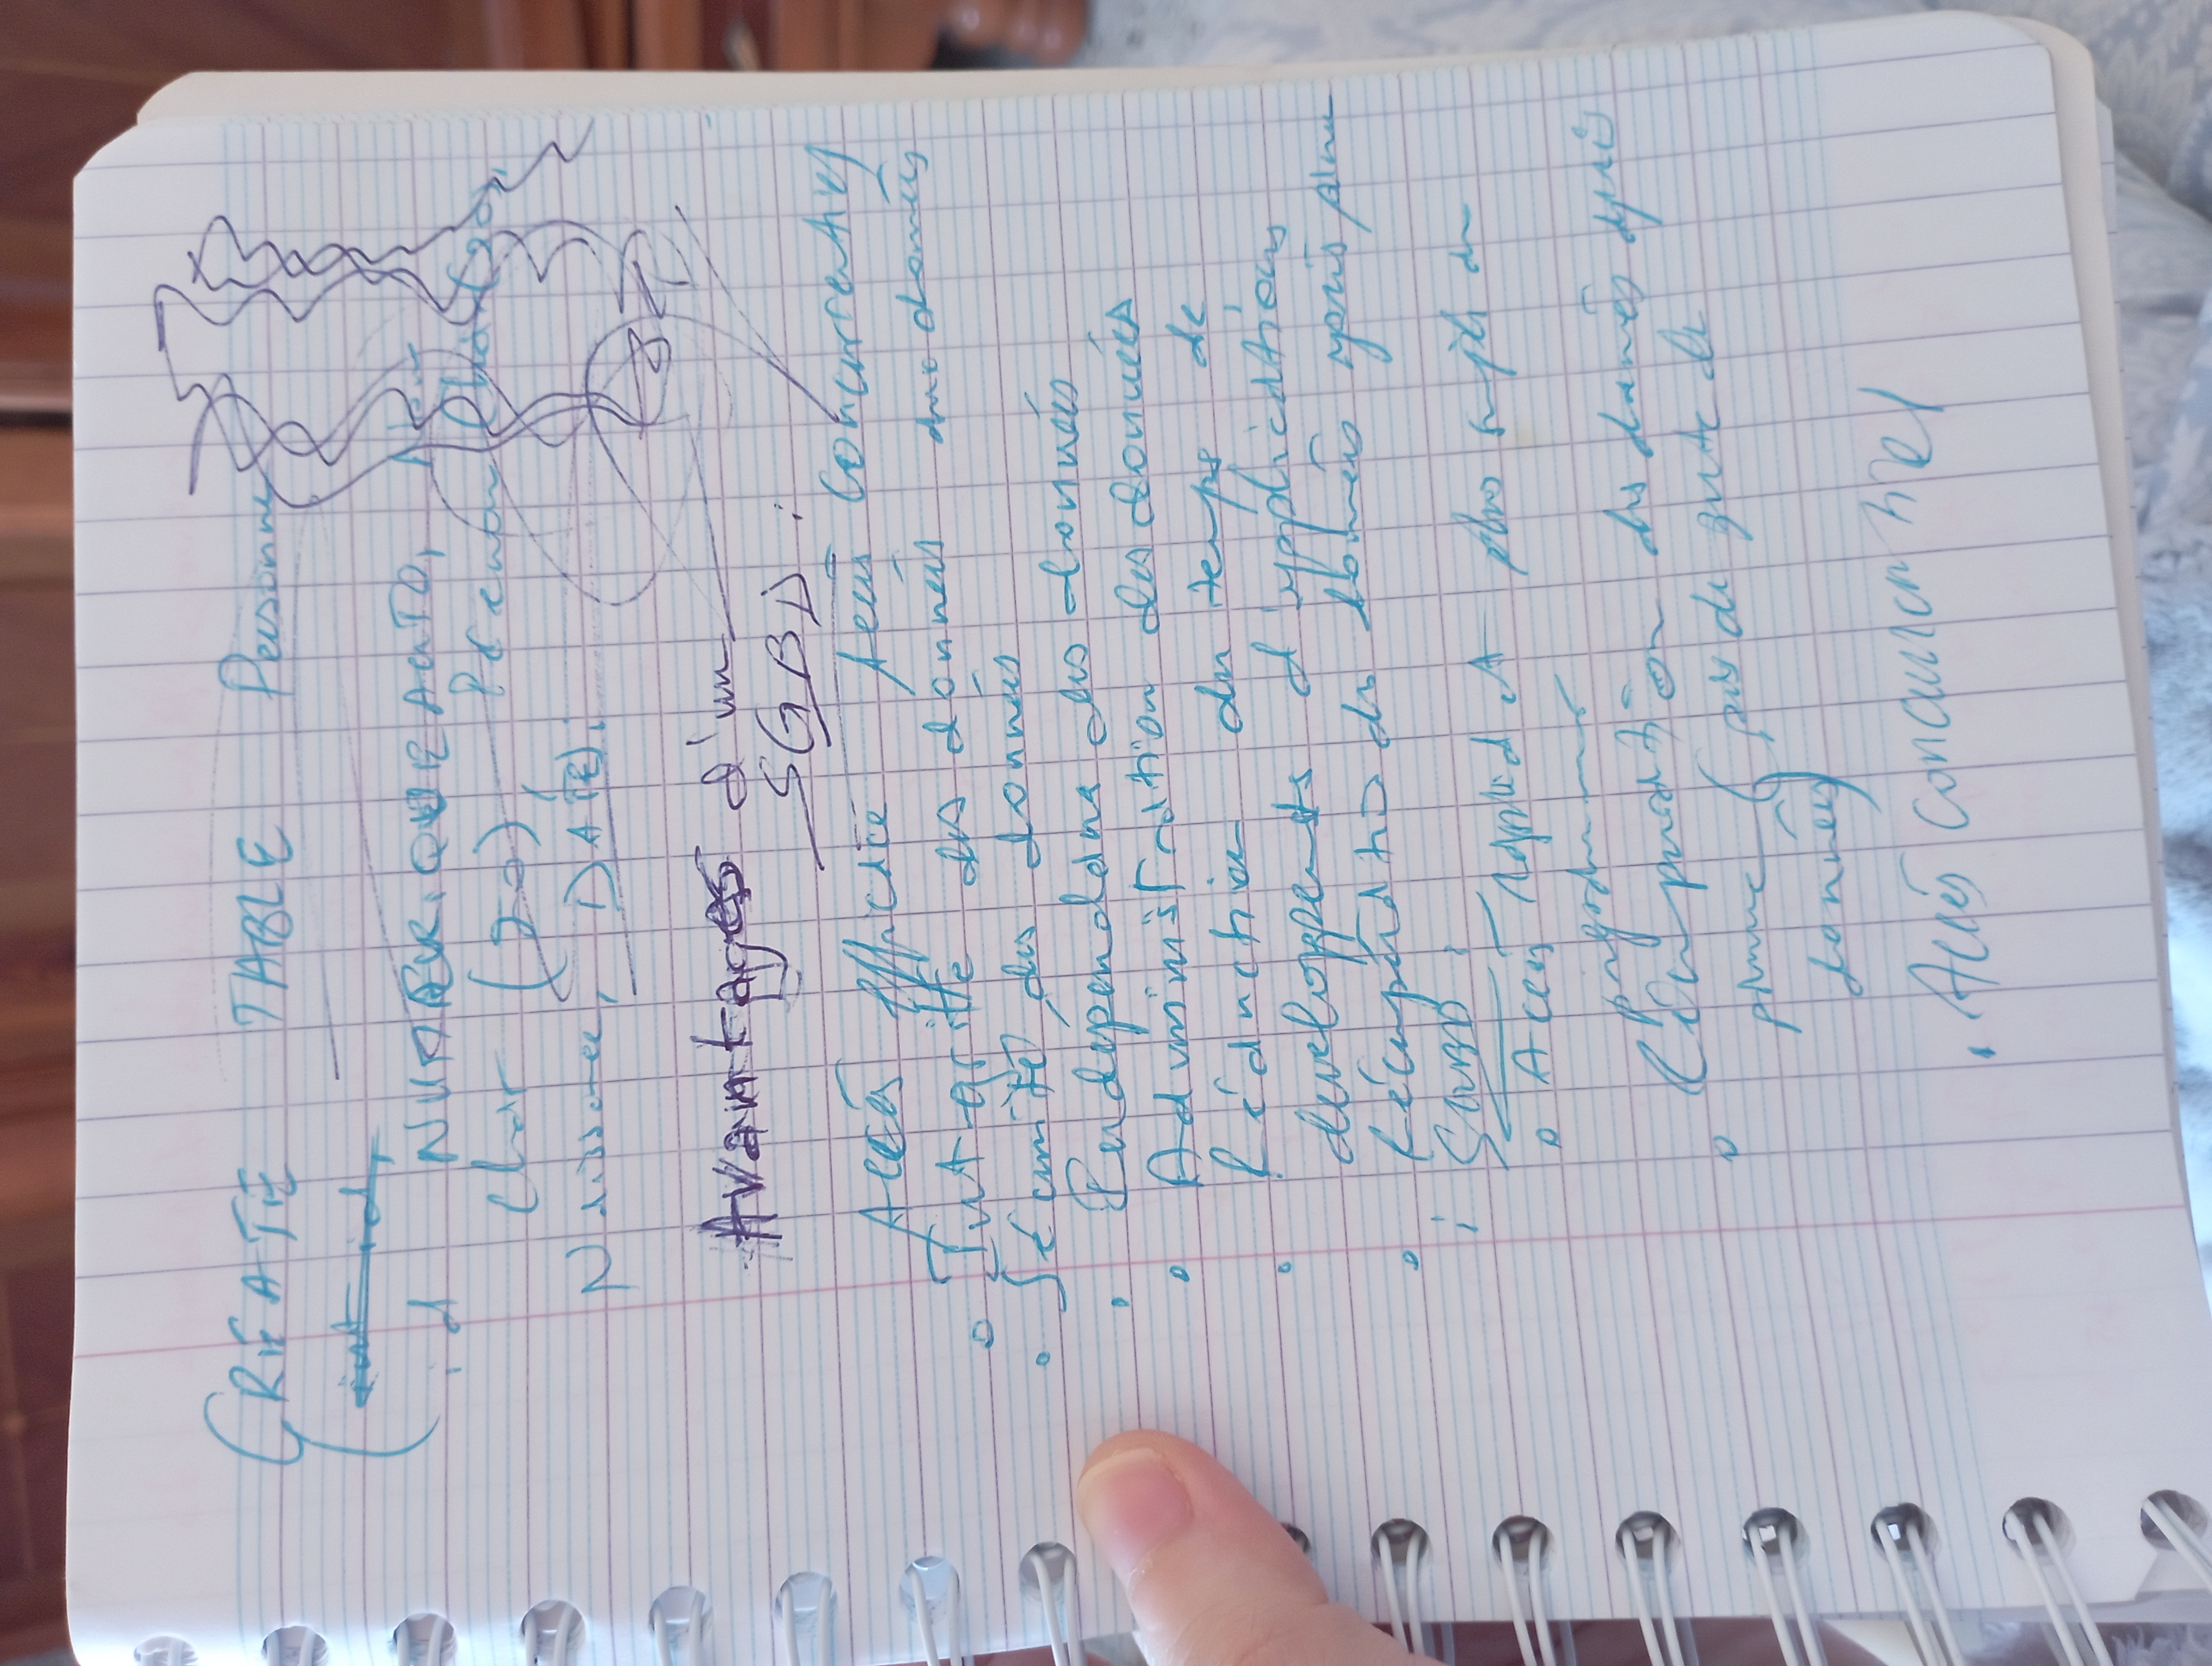 CREATE TABLE Personne
( int id,
id NUMERIQUE AUTO, Nom
Char (20), Prenom Char(20),
Naissance, DATE);
Avantages d'un
SGBD :
Accès efficace Accès Concurrentiel
Intégrité des données aux données
Sécurité des données
Indépendance des données
Administration des données
Réduction du temps de
developpements d'applications
Récupération des données après panne
SGBD :
Accès rapide et plus simple du
programmeur
Récupération des données après
panne (pas de perte de
données)
Accès concurrentiel